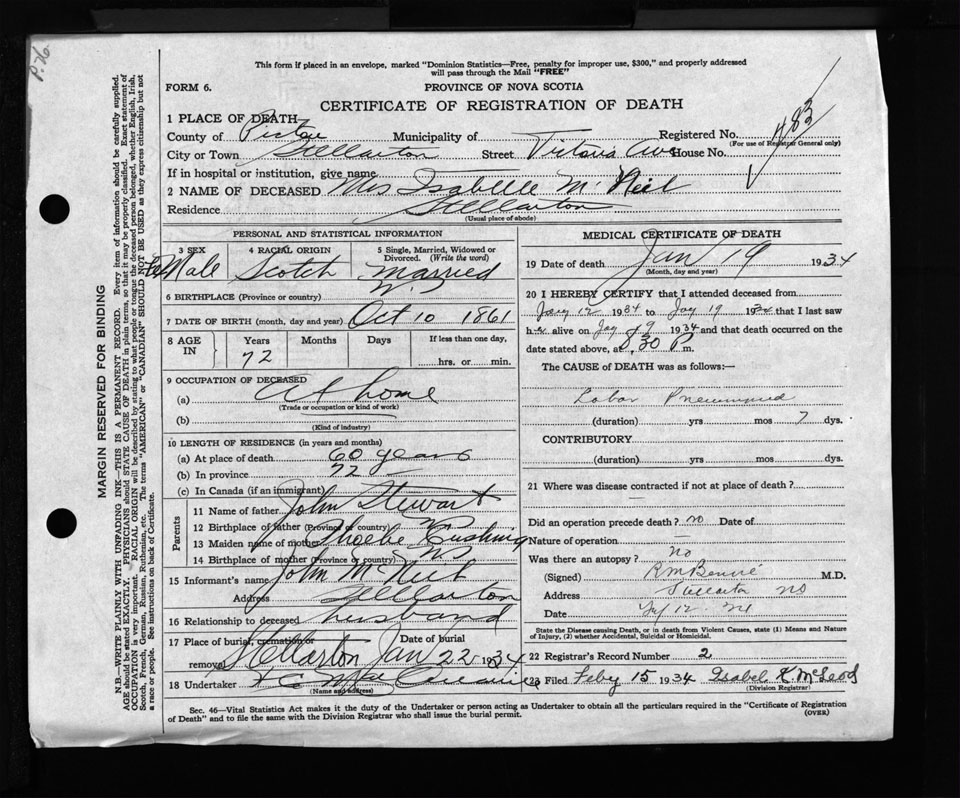 P. 76
This form if placed in an envelope, marked "Dominion Statistics—Free, penalty for improper use, $300," and properly addressed
will pass through the Mail "FREE"
FORM 6.
PROVINCE OF NOVA SCOTIA
CERTIFICATE OF REGISTRATION OF DEATH
1 PLACE OF DEATH
County of Pictou Municipality of Registered No. 783
(For use of Registrar General only)
City or Town Stellarton Street Victoria Ave House No.
If in hospital or institution, give name
2 NAME OF DECEASED Mrs Isabelle McNeil
Residence Stellarton
(Usual place of abode)
PERSONAL AND STATISTICAL INFORMATION
3 SEX 4 RACIAL ORIGIN 5 Single, Married, Widowed or Divorced. (Write the word)
feMale Scotch Married
6 BIRTHPLACE (Province or country) N.S
7 DATE OF BIRTH (month, day and year) Oct 10 1861
8 AGE IN Years Months Days If less than one day,
72 hrs. or min.
9 OCCUPATION OF DECEASED
(a) At home
(Trade or occupation or kind of work)
(b)
(Kind of industry)
10 LENGTH OF RESIDENCE (in years and months)
(a) At place of death 60 years
(b) In province 72
(c) In Canada (if an immigrant)
Parents
11 Name of father John Stewart
12 Birthplace of father (Province or country) NS
13 Maiden name of mother Phoebe Cushing
14 Birthplace of mother (Province or country) NS
15 Informant's name John McNeil
Address Stellarton
16 Relationship to deceased husband
17 Place of burial, cremation or removal Stellarton Date of burial Jan 22 1934
18 Undertaker
(Name and address)
MEDICAL CERTIFICATE OF DEATH
19 Date of death Jan 19 1934
(Month, day and year)
20 I HEREBY CERTIFY that I attended deceased from
Jany 12 1934 to Jay 19 1934 that I last saw
her alive on Jay 19 1934 and that death occurred on
date stated above, at 8,30 P m.
The CAUSE of DEATH was as follows:—
Lobar Pneumonia
(duration) yrs mos 7 dys.
CONTRIBUTORY
(duration) yrs mos dys.
21 Where was disease contracted if not at place of death?
Did an operation precede death? no Date of
Nature of operation —
Was there an autopsy? No
(Signed) M.D.
Address Stellarton NS
Date
State the Disease causing Death, or in death from Violent Causes, state (1) Means and Nature
of Injury, (2) whether Accidental, Suicidal or Homicidal.
22 Registrar's Record Number 2
23 Filed Feby 15 1934 Isabel K. McLeod
(Division Registrar)
Sec. 46—Vital Statistics Act makes it the duty of the Undertaker or person acting as Undertaker to obtain all the particulars required in the "Certificate of Registration
of Death" and to file the same with the Division Registrar who shall issue the burial permit.
(OVER)
MARGIN RESERVED FOR BINDING
N.B.—WRITE PLAINLY WITH UNFADING INK—THIS IS A PERMANENT RECORD. Every item of information should be carefully supplied.
AGE should be stated EXACTLY. PHYSICIANS should STATE CAUSE OF DEATH in plain terms, so that it may be properly classified. Exact statement of
OCCUPATION is very important. RACIAL ORIGIN will be described by stating to what people or tongue the deceased person belonged, whether English, Irish,
Scotch, French, German, Russian, Ruthenian, etc. The terms "AMERICAN" or "CANADIAN" SHOULD NOT BE USED as they express citizenship but not
a race or people. See instructions on back of Certificate.